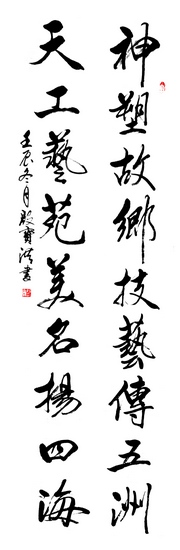 神塑故鄉技藝傳五洲
天工藝苑美名揚四海
壬辰冬月殷寶洪書